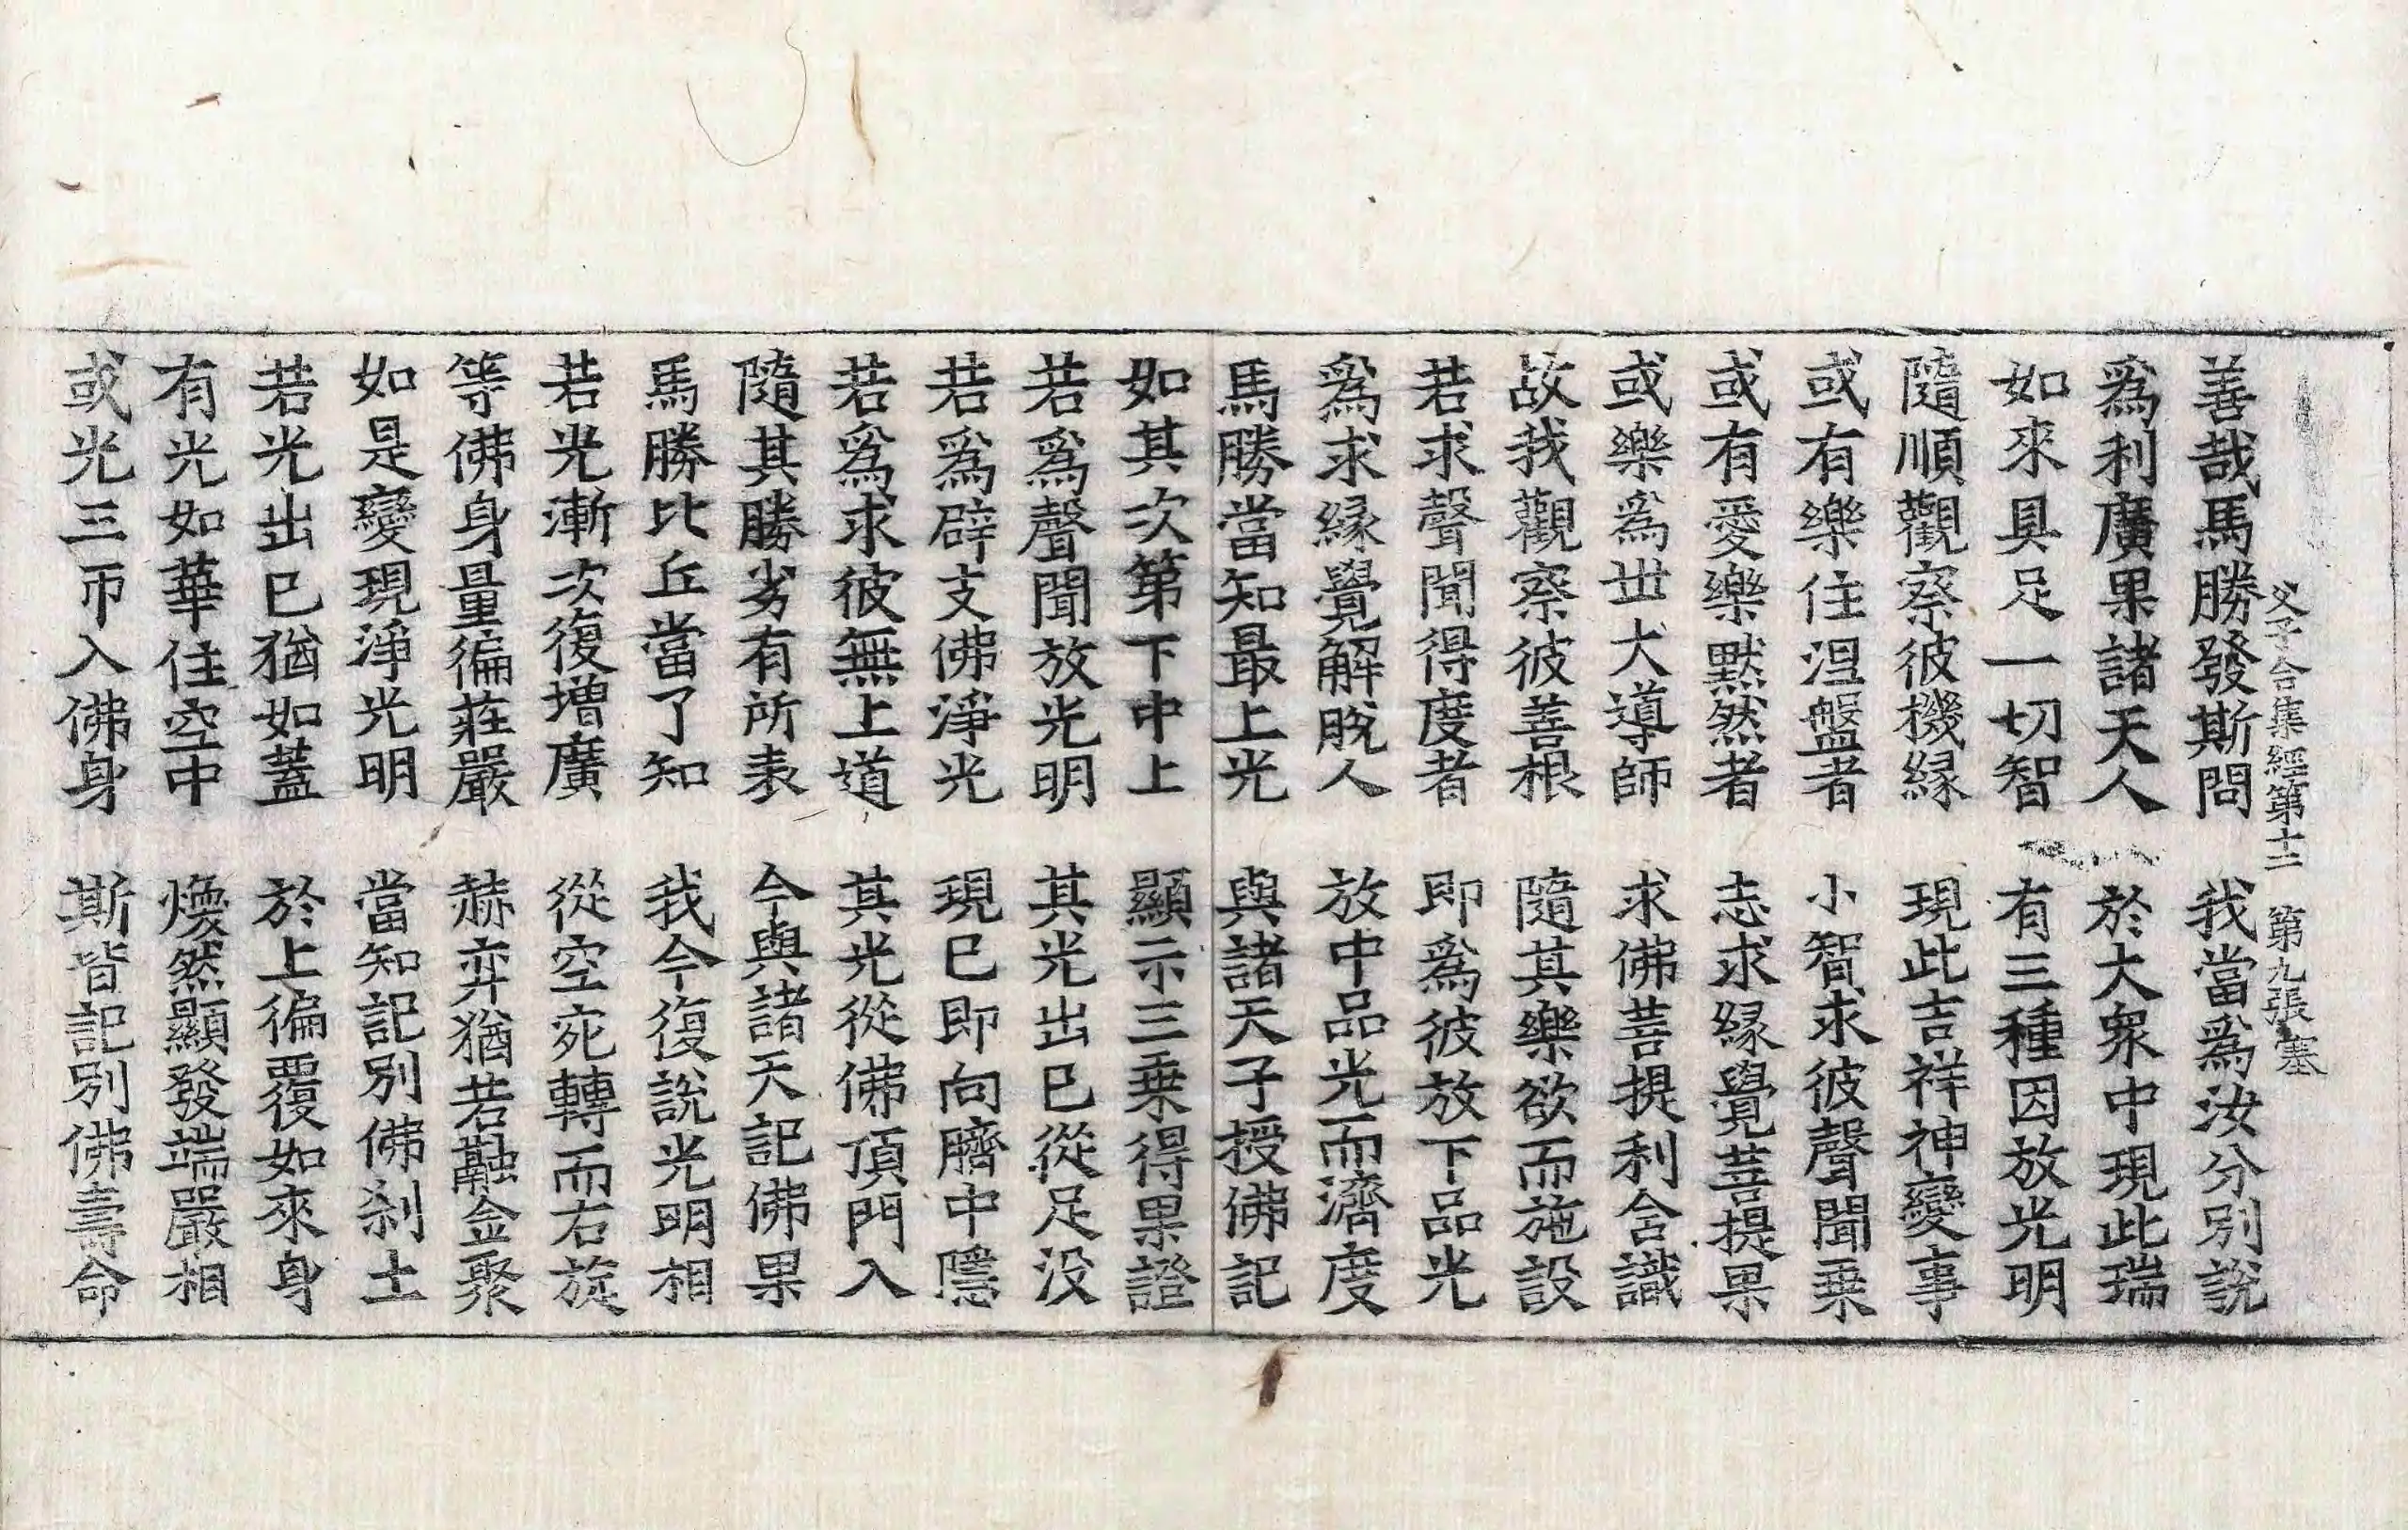 父子合集經第十二 第九張 塞
善哉馬勝發斯問 我當爲汝分別說
爲利廣果諸天人 於大衆中現此瑞
如來具足一切智 有三種因放光明
隨順觀察彼機縁 現此吉祥神變事
或有樂住涅盤者 小智求彼聲聞乗
或有愛樂默然者 志求縁覺菩提果
或樂爲世大導師 求佛菩提利含識
故我觀察彼善根 隨其樂欲而施設
若求聲聞得度者 即爲彼放下品光
爲求縁覺解脫人 放中品光而濟度
馬勝當知最上光 與諸天子授佛記
如其次第下中上 顯示三乗得果證
若爲聲聞放光明 其光出已從足没
若爲辟支佛淨光 現已即向臍中隱
若爲求彼無上道 其光從佛頂門入
隨其勝劣有所表 今與諸天記佛果
馬勝比丘當了知 我今復說光明相
若光漸次復增廣 從空宛轉而右旋
等佛身量徧莊嚴 赫弈猶若融金聚
如是變現淨光明 當知記別佛剎土
若光出已猶如蓋 於上徧覆如來身
有光如華住空中 煥然顯發端嚴相
或光三帀入佛身 斯皆記別佛壽命